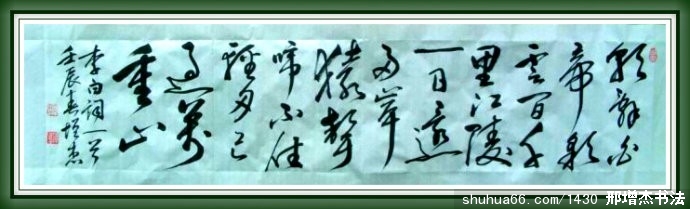 朝辭白
帝彩
雲間千
里江陵
一日還
兩岸
猿聲
啼不住
輕舟已
過萬
重山
李白詞一首
壬辰春增杰
shuhua66.com/1430 邢增杰书法